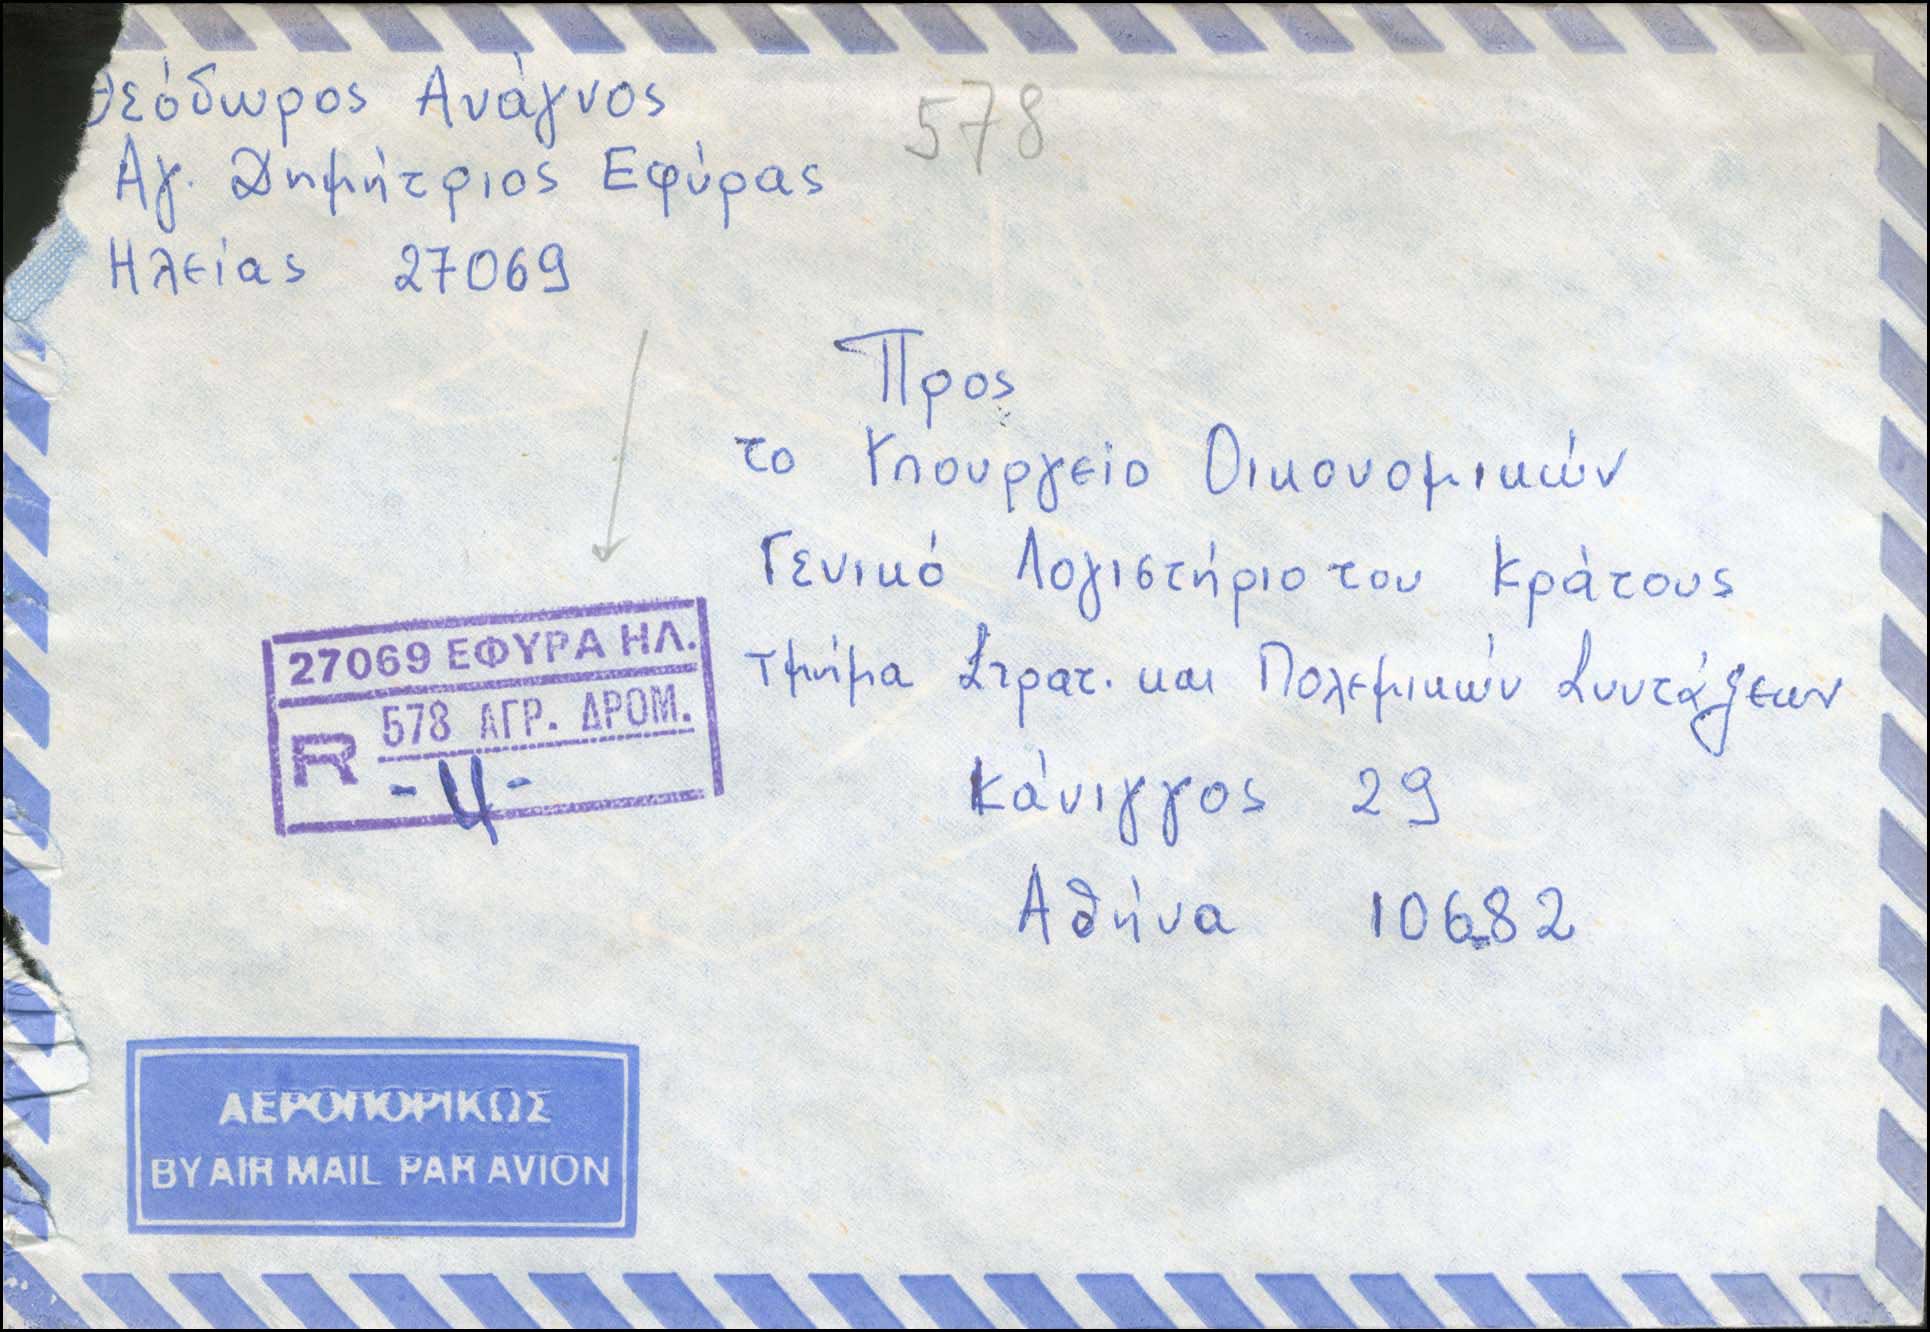 Θεόδωρος Ανάγνος
578
Αγ. Δημήτριος Εφύρας
Ηλείας 27069
Προς
το Υπουργείο Οικονομικών
Γενικό Λογιστήριο του Κράτους
Τμήμα Στρατ. και Πολεμικών Συντάξεων
Κάνιγγος 29
Αθήνα 10682
27069 ΕΦΥΡΑ ΗΛ.
R 578 ΑΓΡ. ΔΡΟΜ.
-4-
ΑΕΡΟΠΟΡΙΚΩΣ
BY AIR MAIL PAR AVION